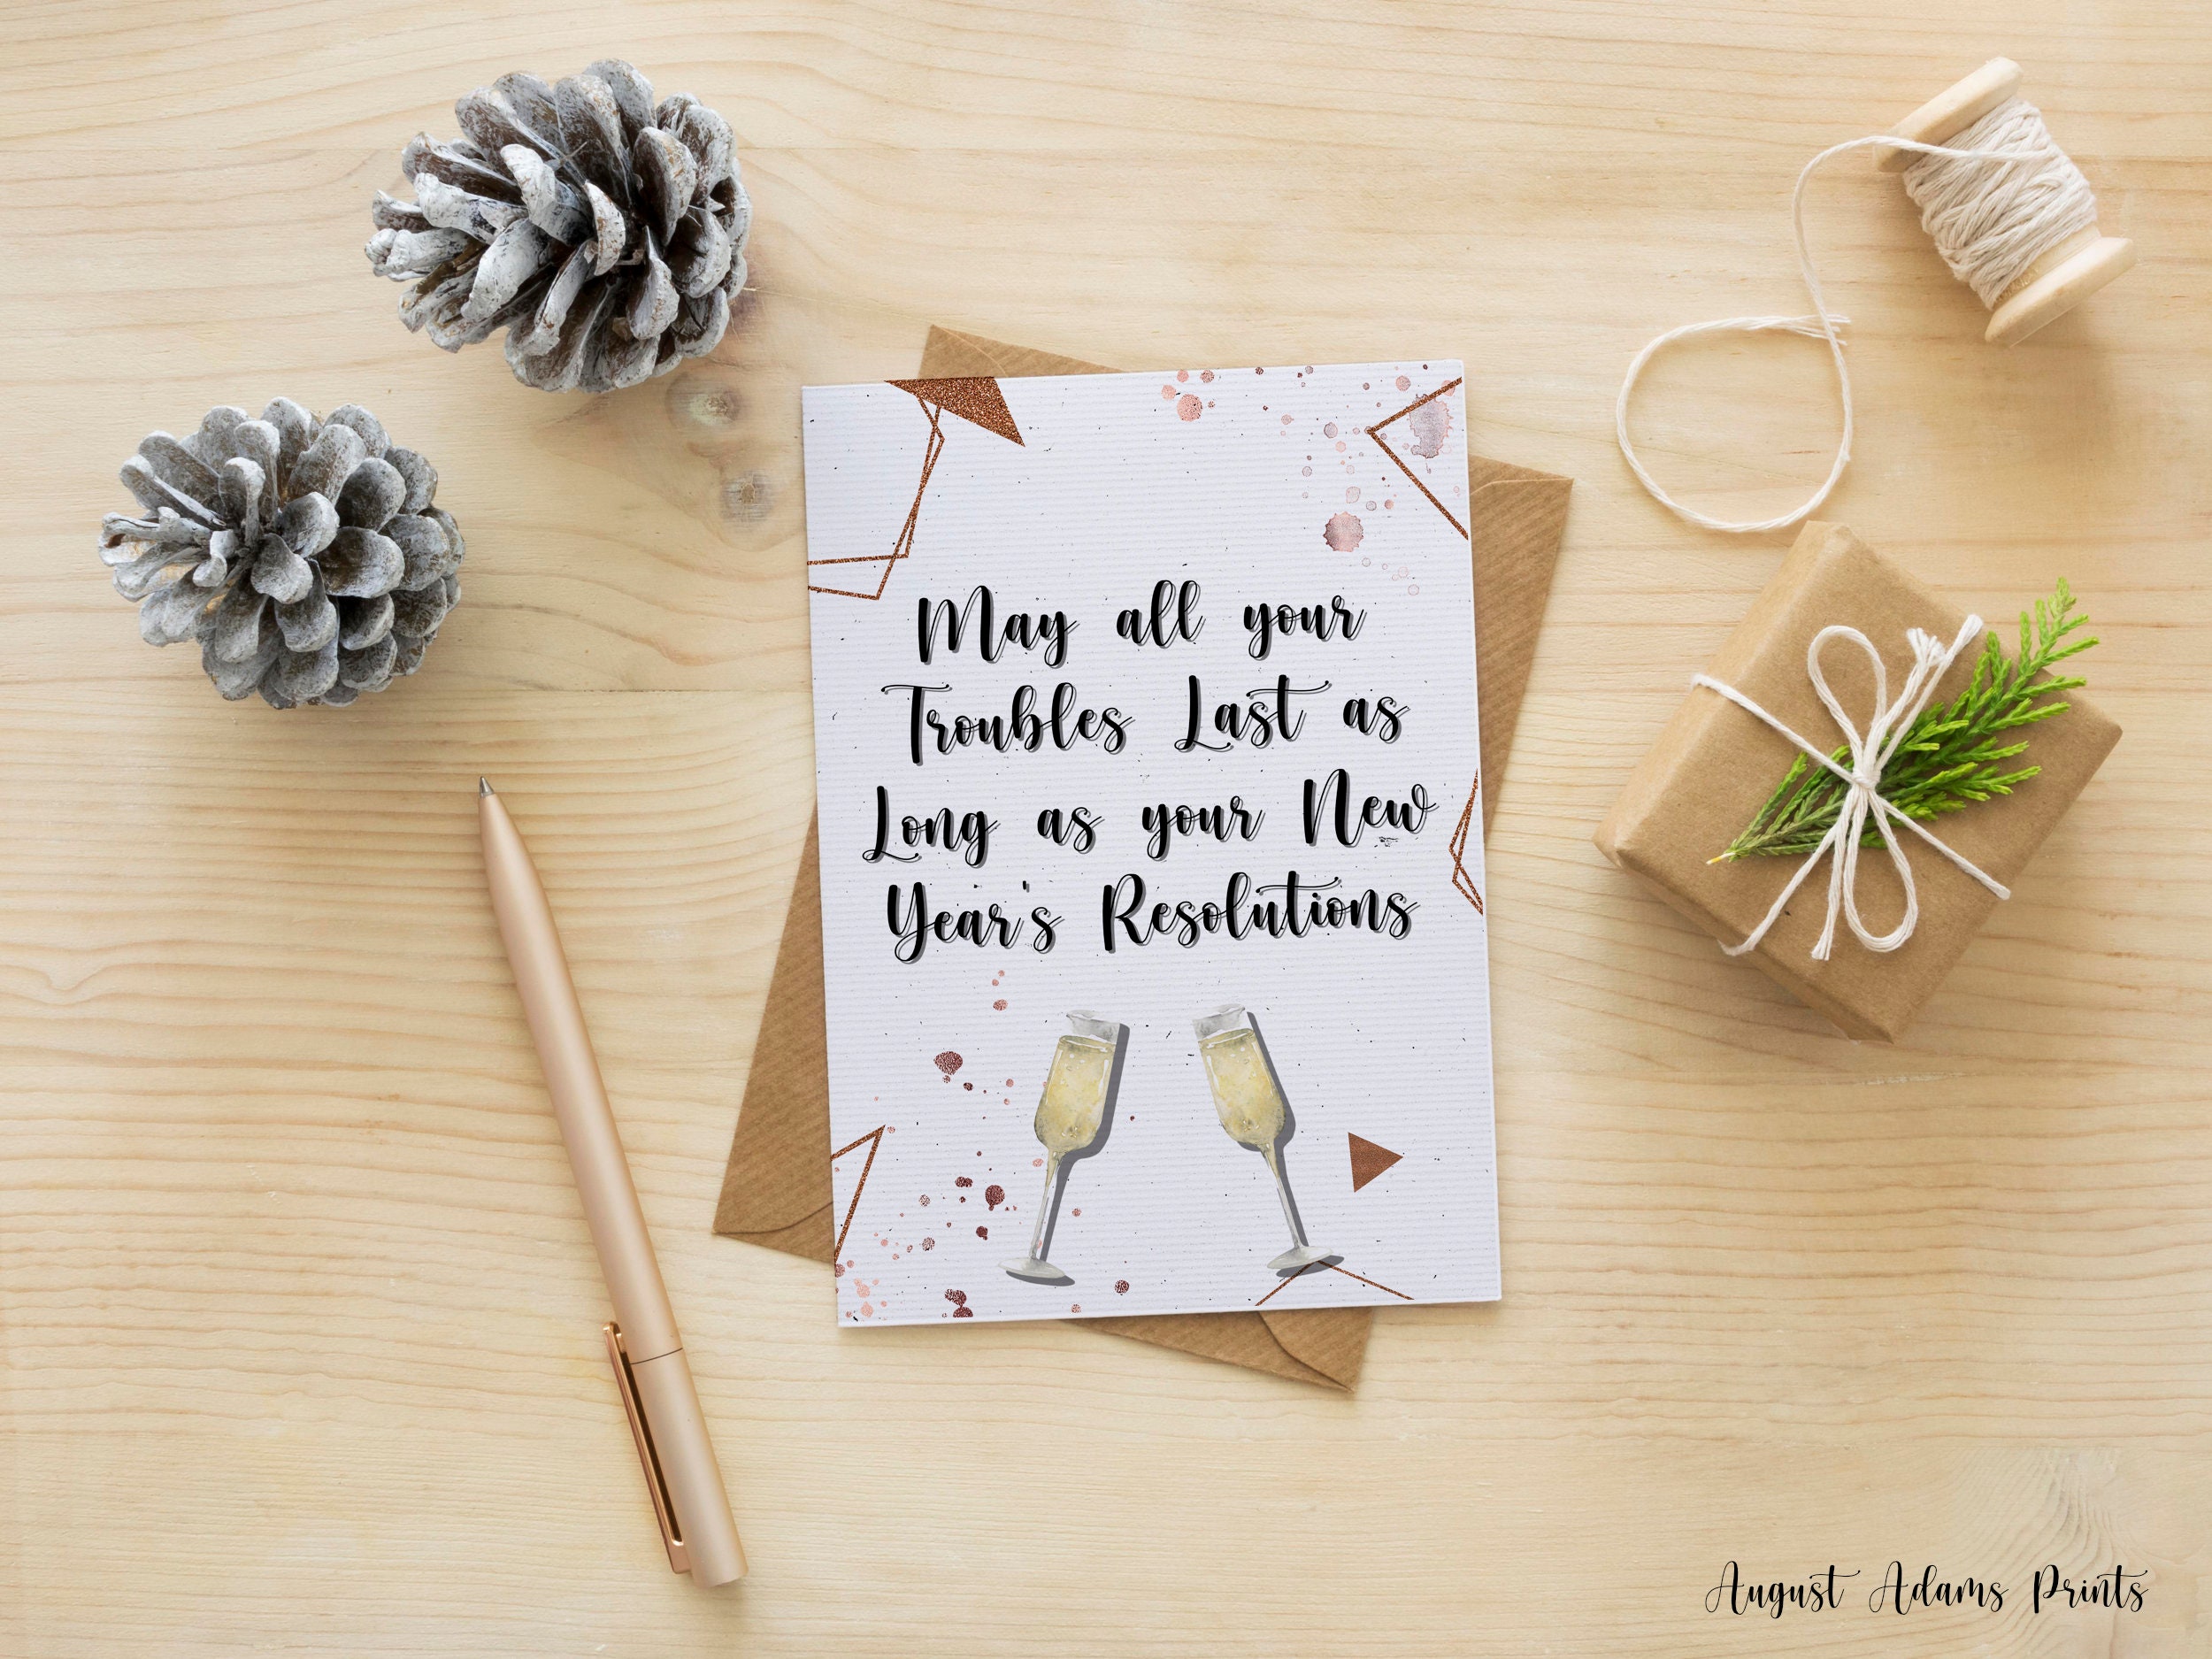 May all your
Troubles Last as
Long as your New
Year's Resolutions
August Adams Prints